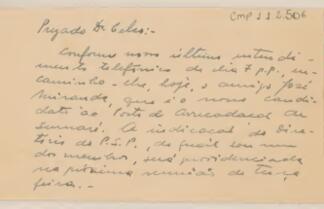 CMP 1.1.2.506
Prezado Dr Celso:-
Conforme nosso último entendi-
mento telefônico do dia 7 p.p., en-
caminho-lhe, hoje, o amigo José
Miranda, que é o nosso candi-
dato ao Posto de Arrecadação de
Sumaré. A indicação do Dire-
tório do P.S.P., do qual sou um
dos membros, será providenciada
na próxima reunião de terça
feira.-